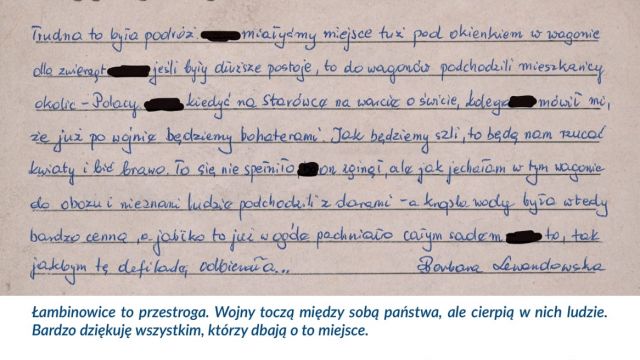 Trudna to była podróż. miałyśmy miejsce tuż pod okienkiem w wagonie
dla zwierząt jeśli były dłuższe postoje, to do wagonów podchodzili mieszkańcy
okolic - Polacy. kiedyś na Starówce na warcie o świcie, kolega mówił mi,
że już po wojnie będziemy bohaterami. Jak będziemy szli, to będą nam rzucać
kwiaty i bić brawo. To się nie spełniło on zginął, ale jak jechałam w tym wagonie
do obozu i nieznani ludzie podchodzili z darami - a kropla wody była wtedy
bardzo cenna, a jabłko to już w ogóle pachniało całym sadem to, tak
jakbym tę defiladę odbierała... Barbara Lewandowska
Łambinowice to przestroga. Wojny toczą między sobą państwa, ale cierpią w nich ludzie.
Bardzo dziękuję wszystkim, którzy dbają o to miejsce.